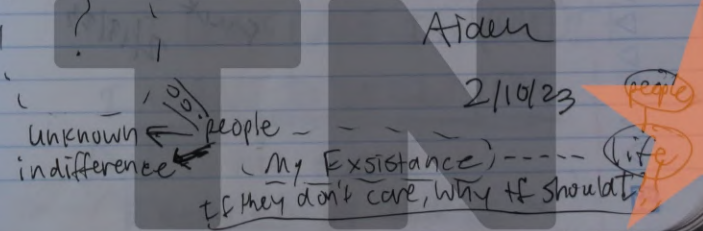 ?
Aiden
2/10/23 people
unknown people
indifference (My Exsistance) life
If they don't care, why tf should I
TN